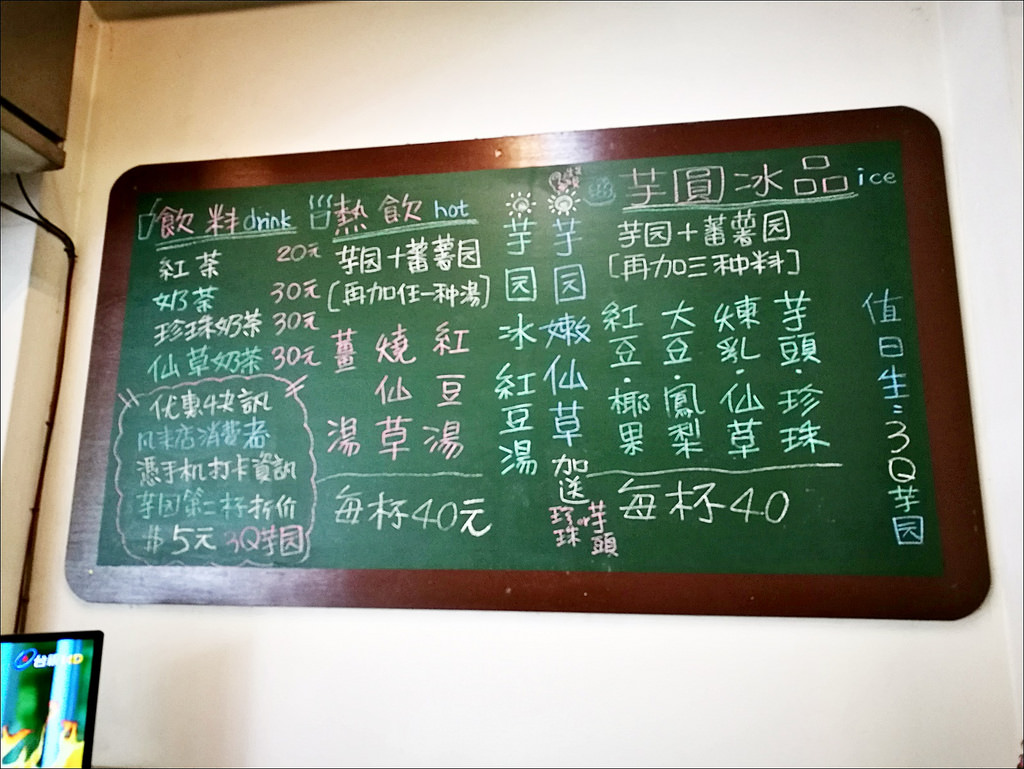 飲料drink
紅茶 20元
奶茶 30元
珍珠奶茶 30元
仙草奶茶 30元
优惠快訊
凡来店消費者
憑手机打卡資訊
芋园第二杯折价
$5元 3Q芋园
熱飲hot
芋园+蕃薯园
[再加任一种湯]
紅豆湯
燒仙草
薑湯
每杯40元
芋园嫩仙草
加送
芋頭
珍珠
芋园冰紅豆湯
芋圓冰品ice
芋园+蕃薯园
[再加三种料]
芋頭·珍珠
煉乳·仙草
大豆·鳳梨
紅豆·椰果
每杯40
值日生:3Q芋园
台視HD